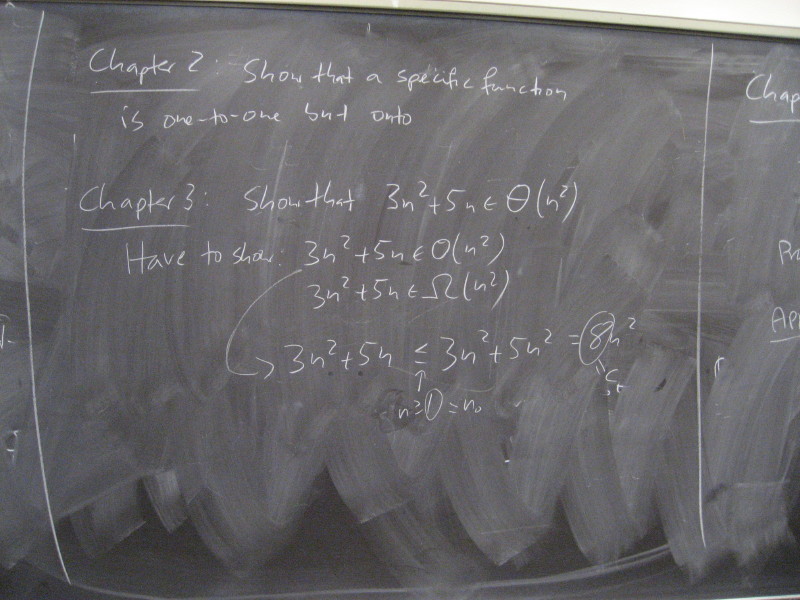 Chapter 2: Show that a specific function
is one-to-one but onto
Chapter 3: Show that 3n²+5n ∈ Θ(n²)
Have to show: 3n²+5n ∈ O(n²)
3n²+5n ∈ Ω(n²)
3n²+5n ≤ 3n²+5n² = 8n²
↑
n≥1=n₀
"c
Chap
Pr
App